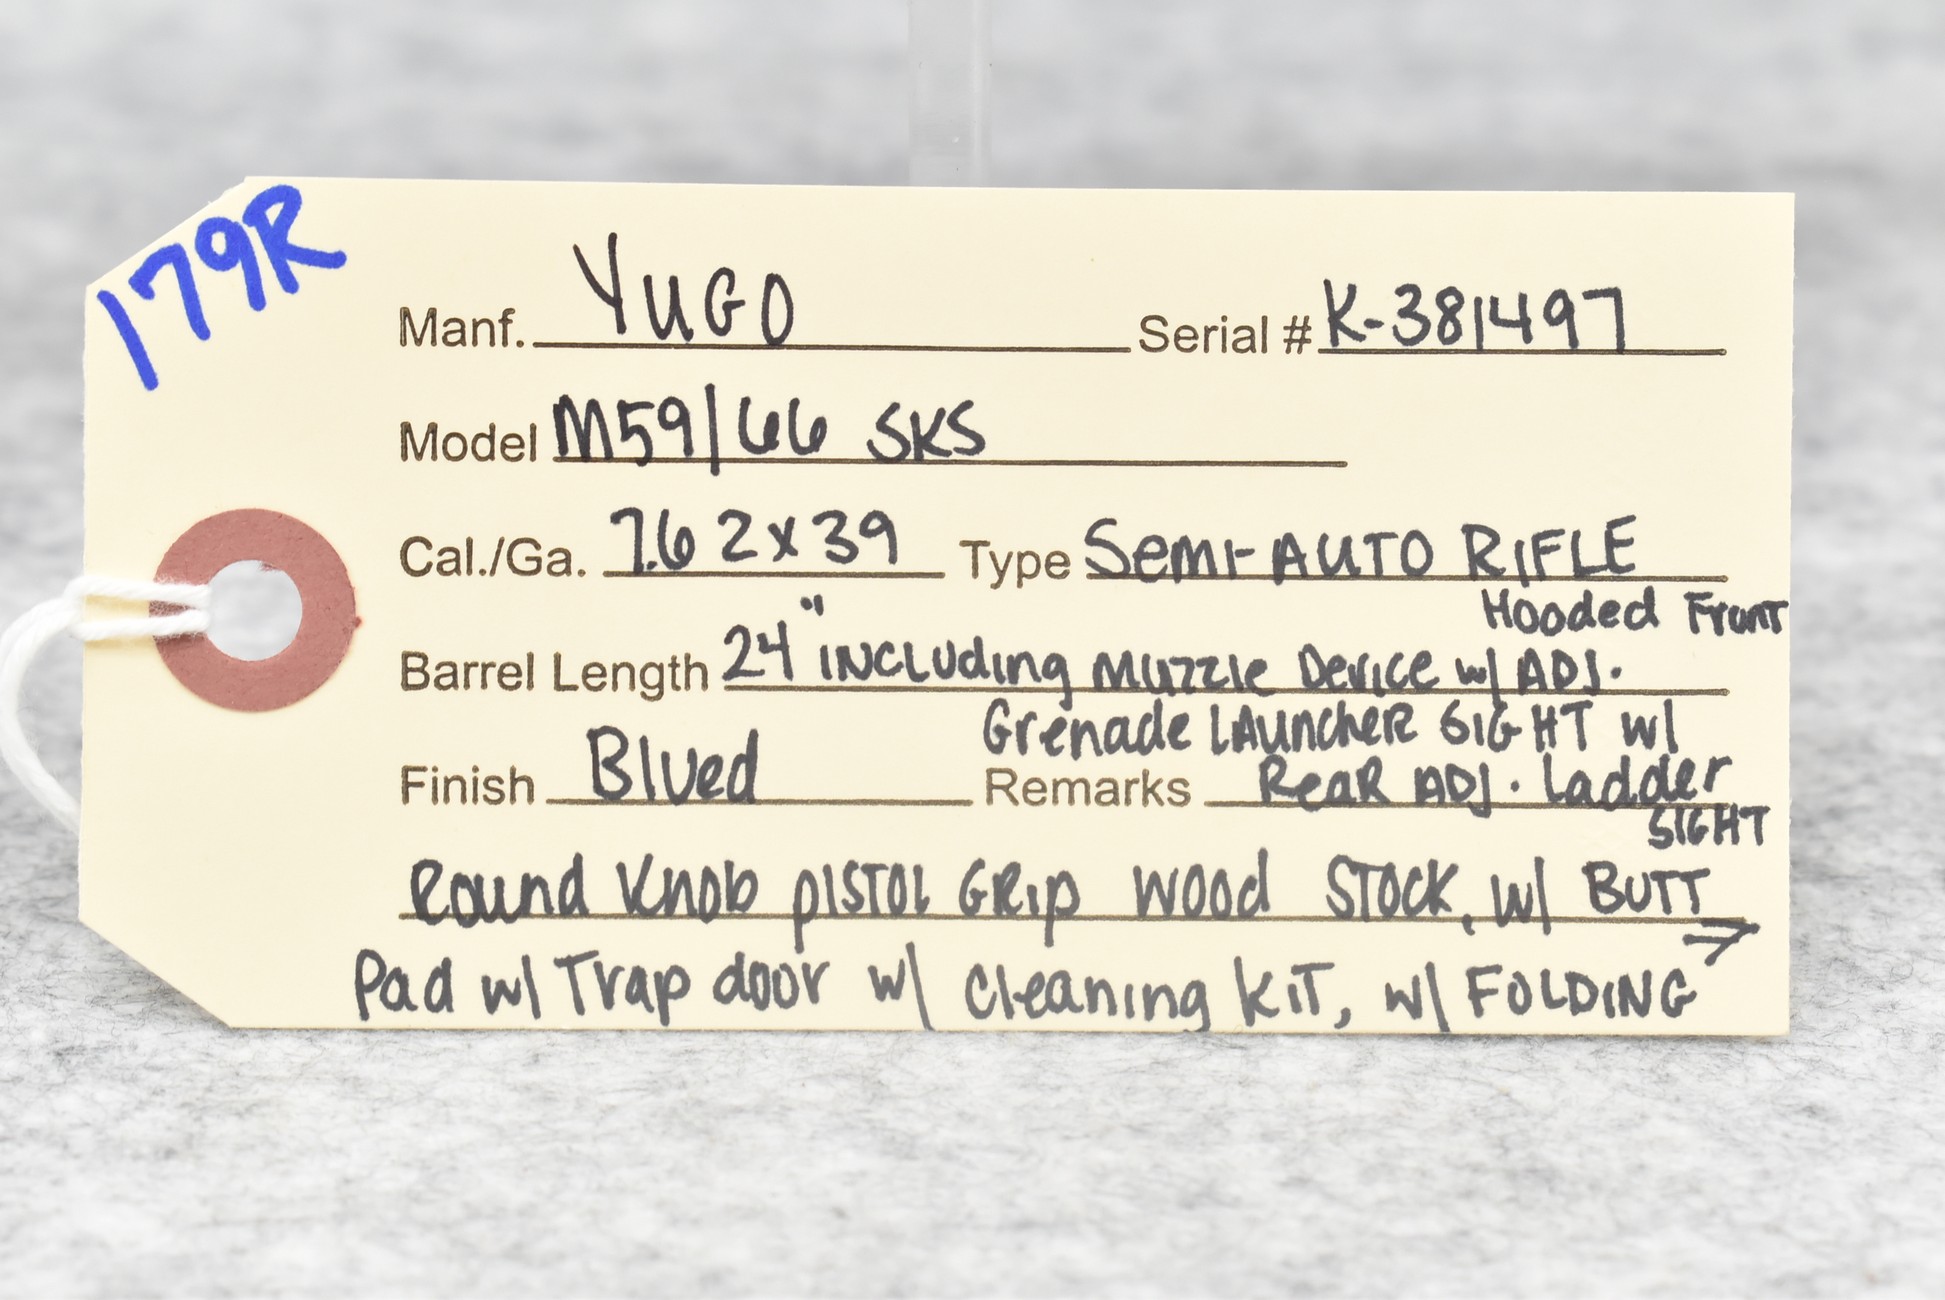 179R
Manf. YUGO Serial # K-381497
Model M59/66 SKS
Cal./Ga. 7.62x39 Type Semi-AUTO RIFLE
Hooded Front
Barrel Length 24" INCLUding Muzzle Device w/ ADJ.
Grenade LAuncheR SIGHT w/
Finish Blued Remarks ReaR ADJ. Ladder
SIGHT
Round Knob PISTOL GRip WOOd STOCK, w/ BUTT
Pad w/ Trap door w/ Cleaning KiT, w/ FOLDING